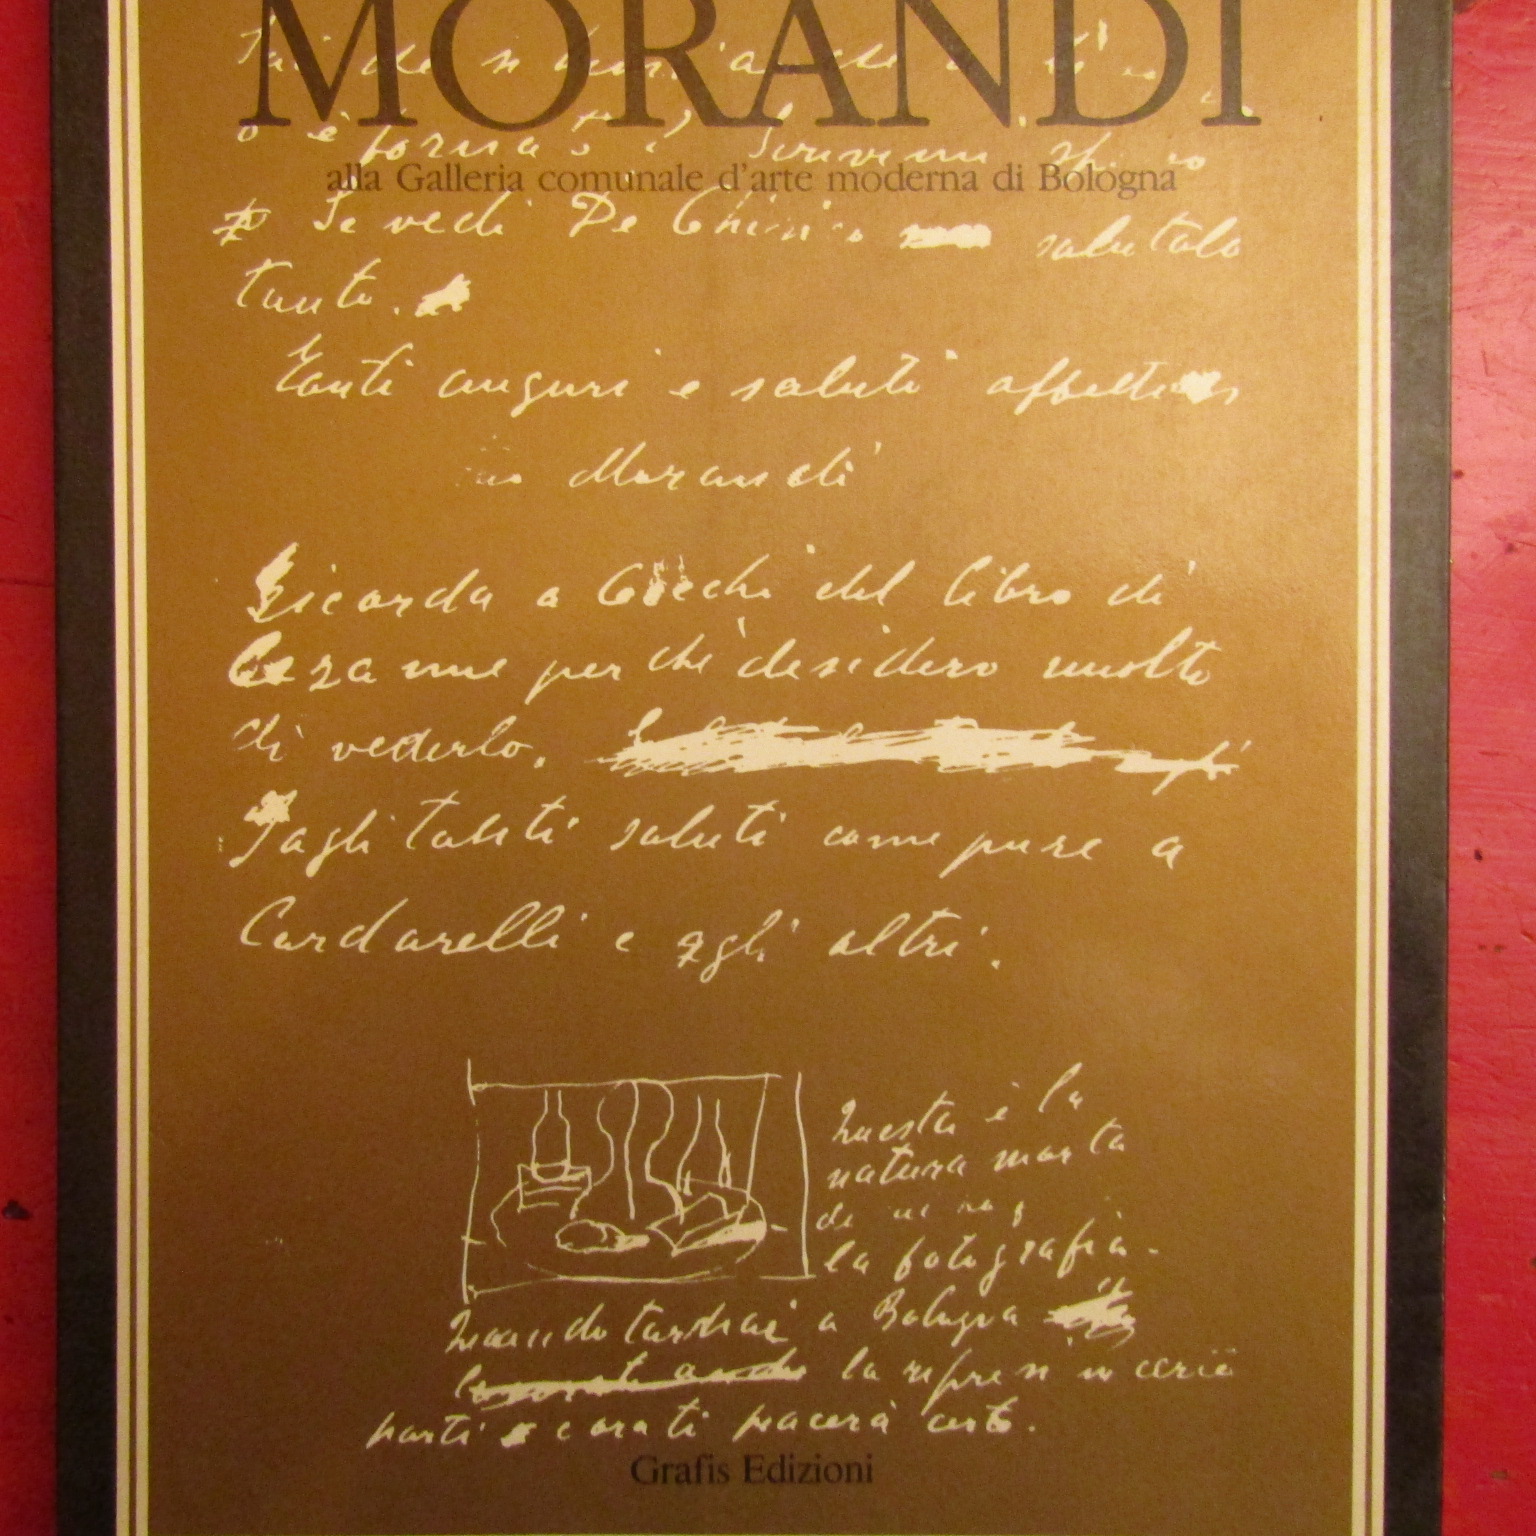 MORANDI
o è tornato? Scrivimi
alla Galleria comunale d'arte moderna di Bologna
Se vedi De Chirico salutalo
tanto.
Tanti auguri e saluti
Morandi
Ricorda a Cecchi del libro di
Cezanne perchè desidero molto
di vederlo.
Fagli tanti saluti come pure a
Cardarelli e agli altri.
Questa è la
natura morta
la fotografia.
Quando tornerai a Bologna
la ripresi in
parti e ora ti piacerà certo.
Grafis Edizioni